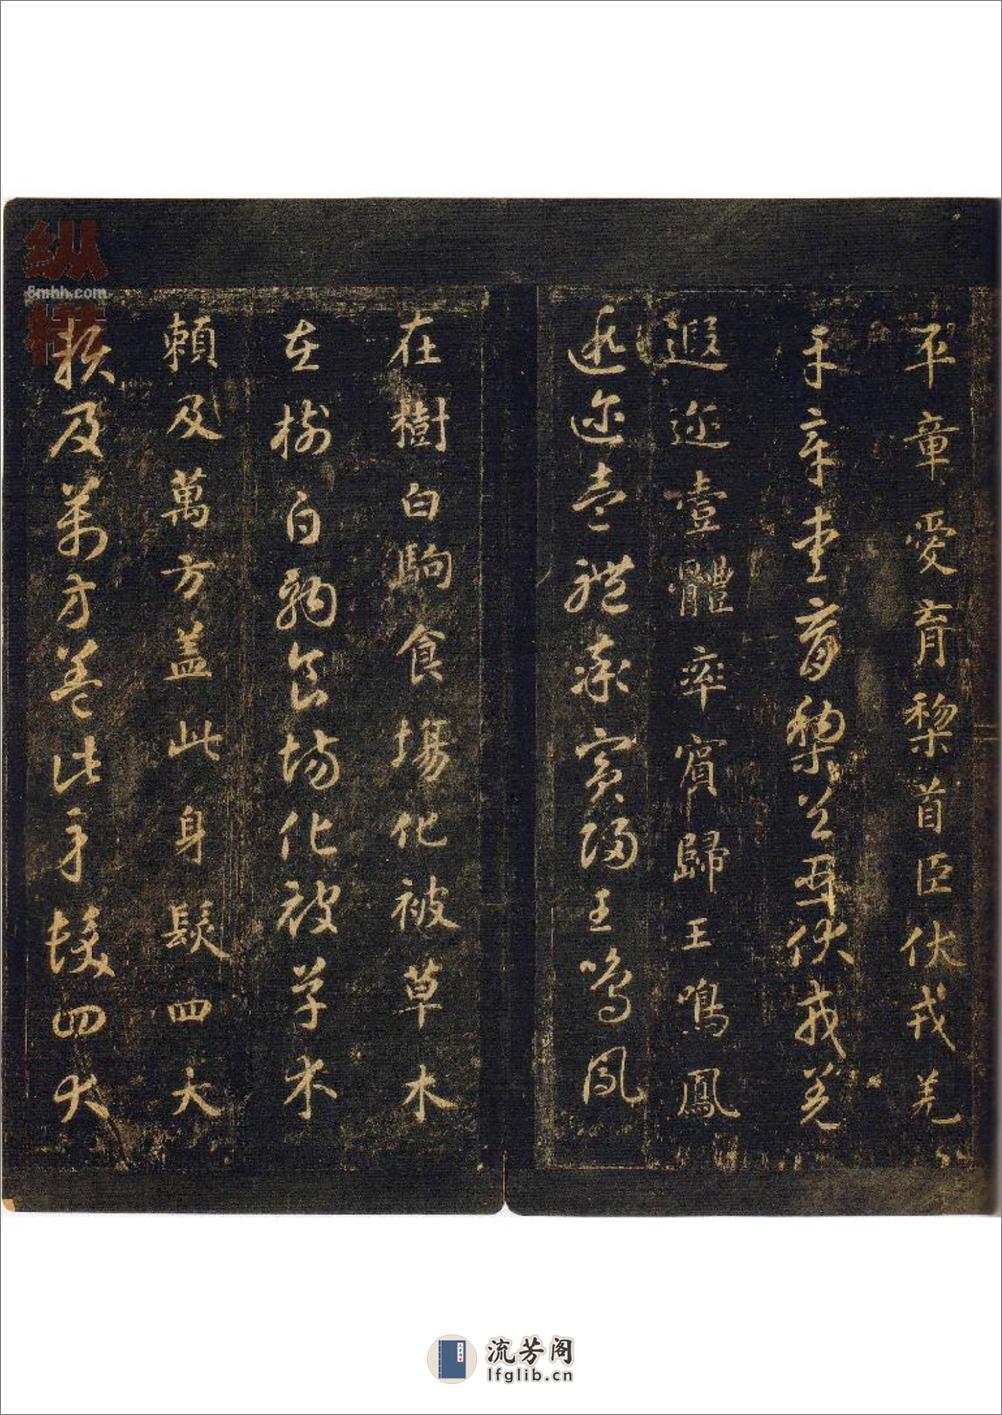 平章愛育黎首臣伏戎羌
平章愛育黎首臣伏戎羌
遐迩壹體率賓歸王鳴鳳
遐迩壹體率賓歸王鳴鳳
在樹白駒食場化被草木
在樹白駒食場化被草木
頼及萬方盖此身髮四大
頼及萬方盖此身髮四大
纵横
8mhh.com
流芳阁
lfglib.cn